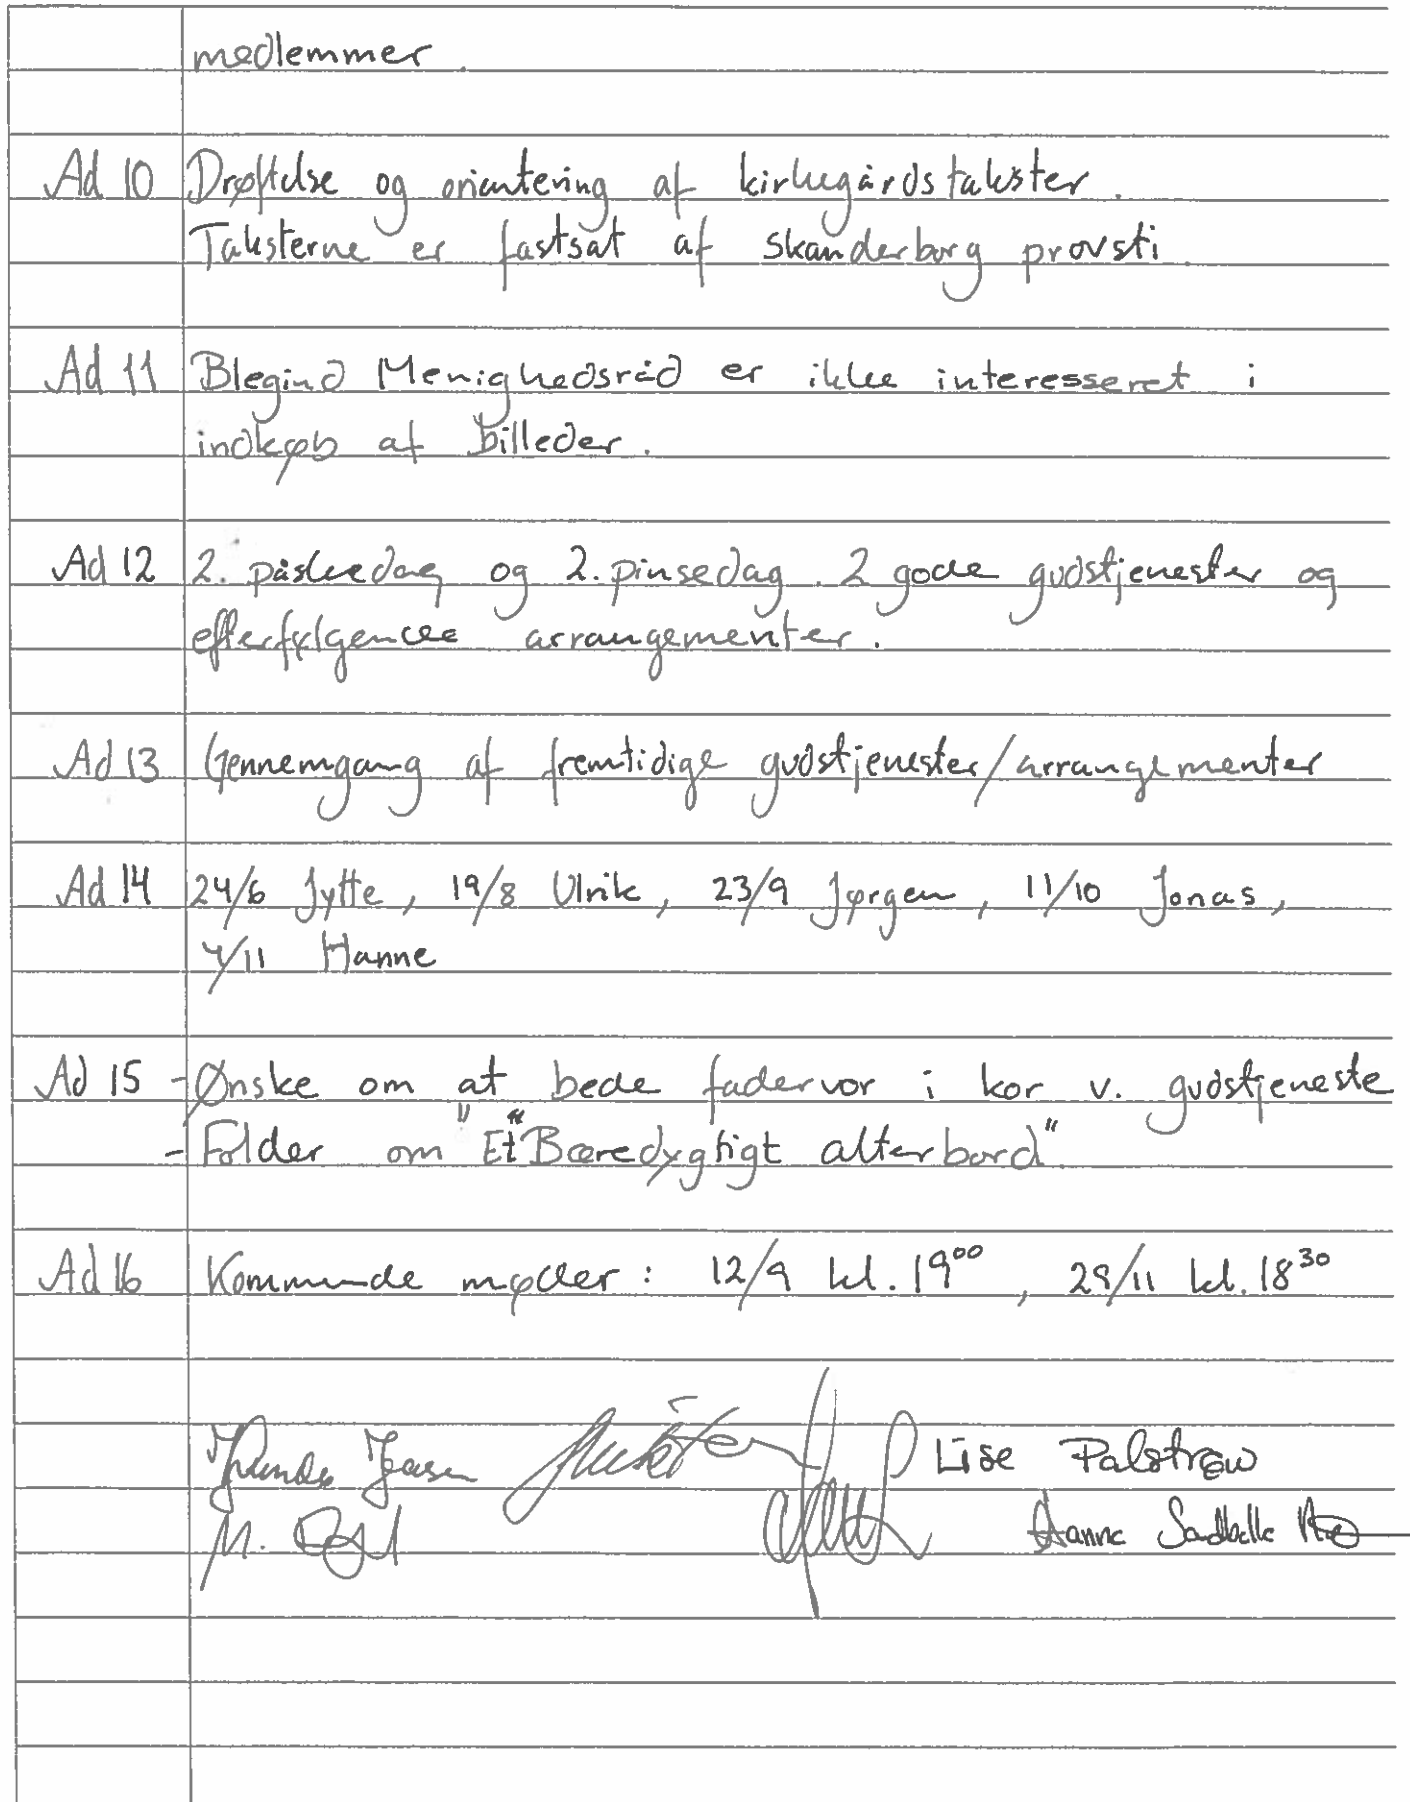 medlemmer.
Ad 10 Drøftelse og orientering af kirkegårdstakster.
Taksterne er fastsat af Skanderborg provsti.
Ad 11 Blegind Menighedsråd er ikke interesseret i
indkøb af billeder.
Ad 12 2. påskedag og 2. pinsedag. 2 gode gudstjenester og
efterfølgende arrangementer.
Ad 13 Gennemgang af fremtidige gudstjenester/arrangementer
Ad 14 24/6 Jytte, 19/8 Ulrik, 23/9 Jørgen, 11/10 Jonas,
4/11 Hanne
Ad 15 - Ønske om at bede fadervor i kor v. gudstjeneste
- Folder om "Et" Bæredygtigt alterbord".
Ad 16 Kommende møder: 12/9 kl. 19⁰⁰, 29/11 kl. 18³⁰
Lise Palstrøm
M.
Hanne